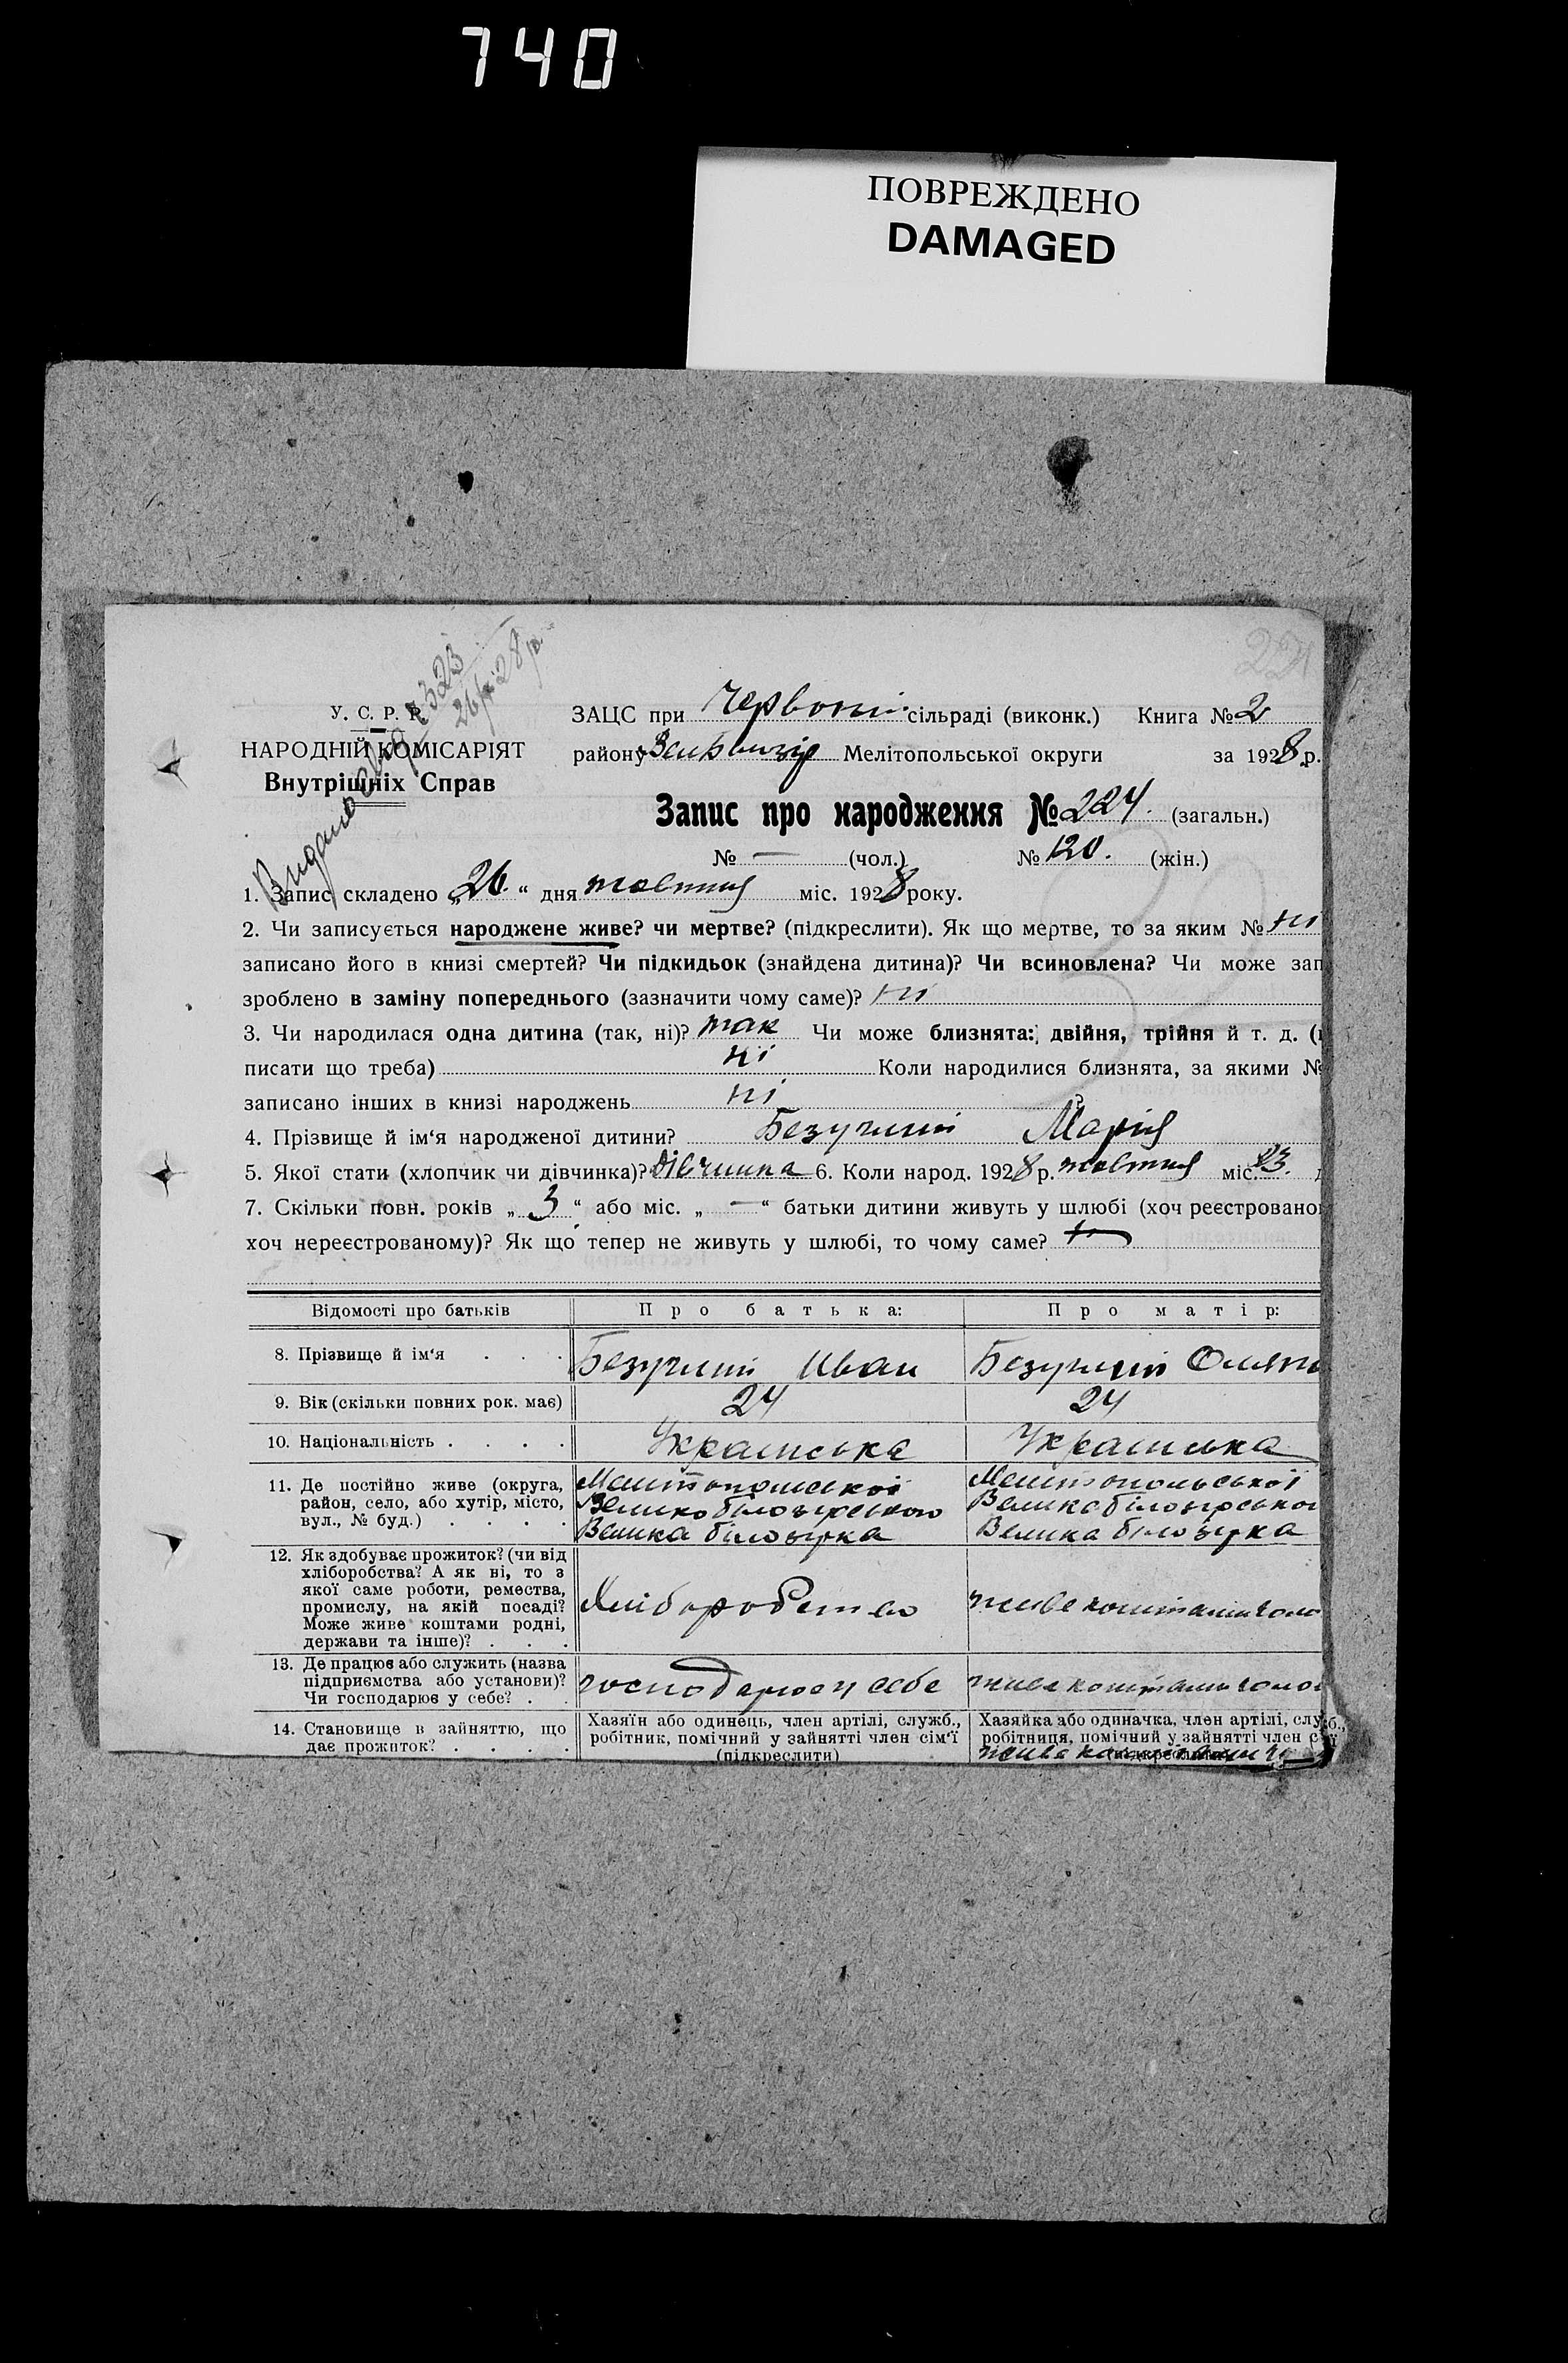 740
ПОВРЕЖДЕНО
DAMAGED
221
Видано 323
26/X 28 р.
У. С. Р. Р.
НАРОДНІЙ КОМІСАРІЯТ
Внутрішніх Справ
ЗАЦС при Червоній сільраді (виконк.) Книга № 2
району Мелітопольської округи за 1928 р.
Запис про народження № 221. (загальн.)
№ — (чол.) № 120. (жін.)
1. Запис складено „26.“ дня жовтня міс. 1928 року.
2. Чи записується народжене живе? чи мертве? (підкреслити). Як що мертве, то за яким № ні
записано його в книзі смертей? Чи підкидьок (знайдена дитина)? Чи всиновлена? Чи може зап
зроблено в заміну попереднього (зазначити чому саме)? ні
3. Чи народилася одна дитина (так, ні)? так Чи може близнята: двійня, трійня й т. д. (
писати що треба) ні Коли народилися близнята, за якими №
записано інших в книзі народжень ні ?
4. Прізвище й ім‘я народженої дитини? Марія
5. Якої стати (хлопчик чи дівчинка)? дівчинка 6. Коли народ. 1928 р. жовтня міс. 23.
7. Скільки повн. років „3“ або міс. „—“ батьки дитини живуть у шлюбі (хоч реєстровано
хоч нереєстрованому)? Як що тепер не живуть у шлюбі, то чому саме?
Відомості про батьків Про батька: Про матір:
8. Прізвище й ім‘я . . . Иван
9. Вік (скільки повних рок. має) 24 24
10. Національність . . . . Українська Українська
11. Де постійно живе (округа, район, село, або хутір, місто, вул., № буд.) . . . .
Мелітопольської
Великобілозірського
Велика білозірка
Мелітопольської
Великобілозірськог
Велика білозірка
12. Як здобуває прожиток? (чи від хліборобства? А як ні, то з якої саме роботи, ремества, промислу, на якій посаді? Може живе коштами родні, держави та інше)? . . .
Хліборобство
живе коштами чоло
13. Де працює або служить (назва підприємства або установи)? Чи господарює у себе? . .
господарює у себе
живе коштами чолов
14. Становище в зайняттю, що дає прожиток? . . . .
Хазяїн або одинець, член артілі, служб., робітник, помічний у зайнятті член сім‘ї (підкреслити)
Хазяйка або одиначка, член артілі, служб., робітниця, помічний у зайнятті член с ї
живе коштами чо